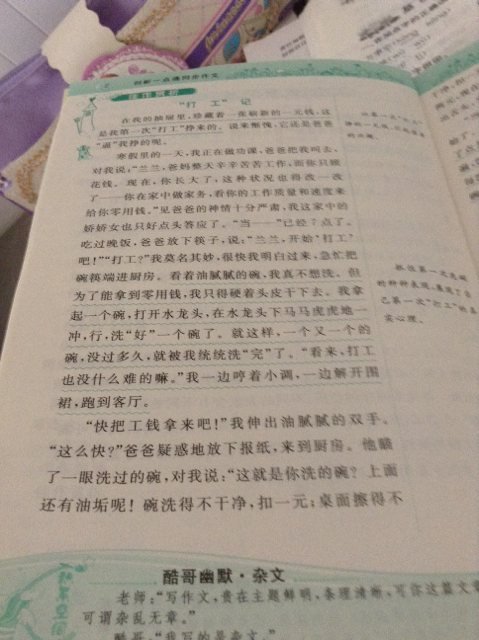 创新一点通同步作文
佳作赏析
“打 工”记
在我的抽屉里,珍藏着一张崭新的一元钱,这
是我第一次“打工”挣来的。说来惭愧,它还是爸爸
“逼”我挣的呢。
寒假里的一天,我正在做功课,爸爸把我叫去,
对我说:“兰兰,爸妈整天辛辛苦苦工作,而你只顾
花钱。现在,你长大了,这种状况也得改一改
了——你在家中做家务,看你的工作质量和速度来
给你零用钱。”见爸爸的神情十分严肃,我这家中的
娇娇女也只好点头答应了。“当——”已经7点了。
吃过晚饭,爸爸放下筷子,说:“兰兰,开始‘打工’
吧!”“打工?”我莫名其妙,很快我明白过来,急忙把
碗筷端进厨房。看着油腻腻的碗,我真不想洗。但
为了能拿到零用钱,我只得硬着头皮干下去。我拿
起一个碗,打开水龙头,在水龙头下马马虎虎地一
冲,行,洗“好”一个碗了。就这样,一个又一个的
碗,没过多久,就被我统统洗“完”了。“看来,打工
也没什么难的嘛。”我一边哼着小调,一边解开围
裙,跑到客厅。
“快把工钱拿来吧!”我伸出油腻腻的双手。
“这么快?”爸爸疑惑地放下报纸,来到厨房。他瞄
了一眼洗过的碗,对我说:“这就是你洗的碗?上面
还有油垢呢!碗洗得不干净,扣一元;桌面擦得不
抓住第一次洗碗
的种种表现,展现了自
己第一次“打工”的真
实心理。
酷哥幽默·杂文
老师:“写作文,贵在主题鲜明,条理清晰,可你这篇文章
可谓杂乱无章。”
酷哥:“我写的是杂文。”